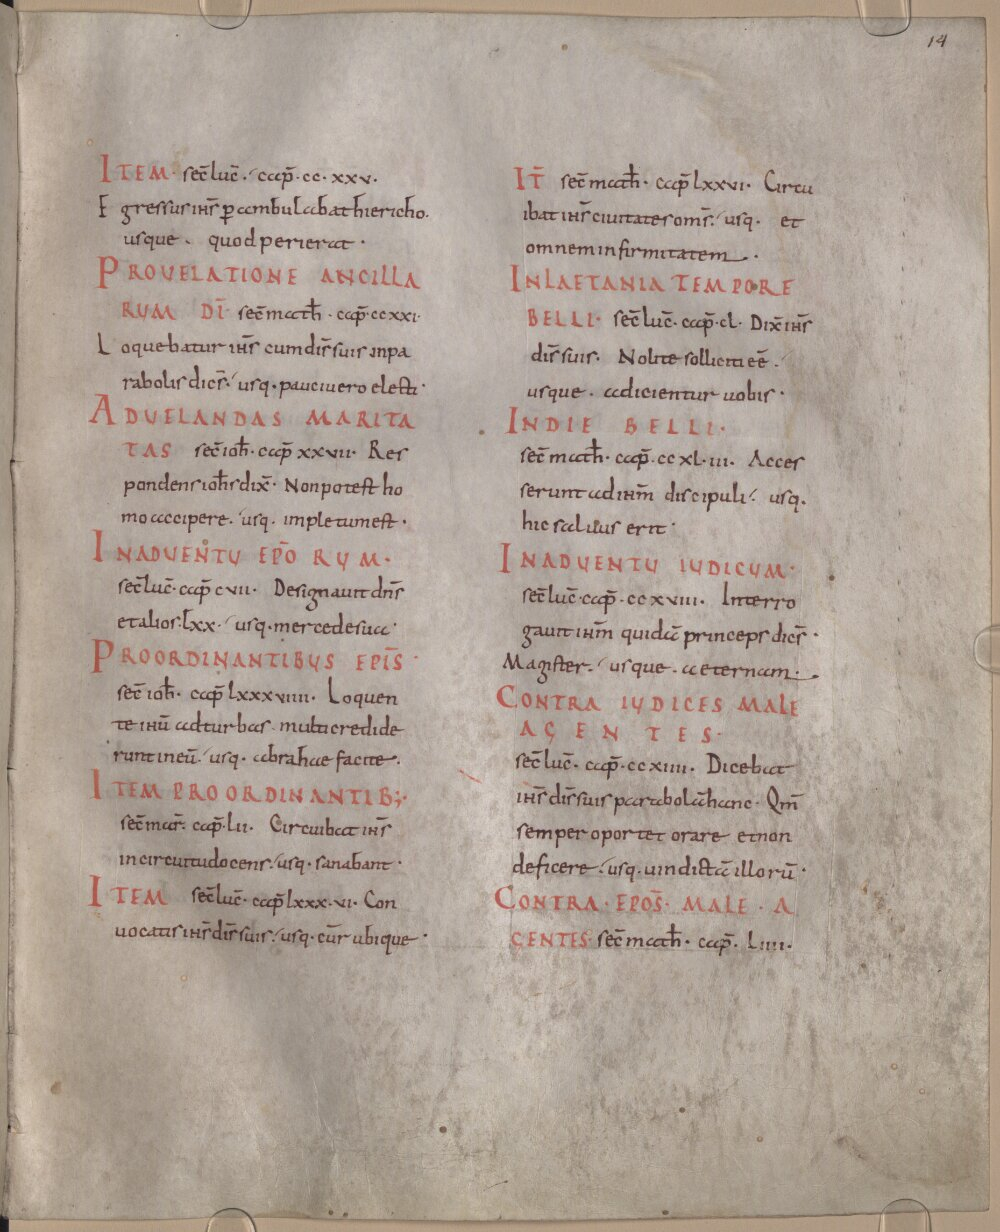 14
ITEM· sec̄ luc̄· cap̄·cc·xxv·
Egressus ih̄s p̄ambulabat hiericho·
usque· quod perierat·
PRO VELATIONE ANCILLA
RUM DĪ· sec̄ math̄· cap̄·ccxxi·
Loquebatur ih̄s cum disc̄ suis inpa
rabolis dicēs· usq· pauci vero electi·
AD VELANDAS MARITA
TAS sec̄ ioh̄· cap̄ xxvii· Res
pondens ioh̄s dix̄· Non potest ho
mo accipere· usq· impletum est·
IN ADVENTU EPŌRUM·
sec̄ luc̄·cap̄ cvii· Designavit dn̄s
et alios·lxx· usq· mercede sua·
PRO ORDINANTIBUS EPĪS·
sec̄ ioh̄· cap̄ lxxxviiii· Loquen
te ihū ad turbas multi credide
runt in eū· usq· abrahae facite·
ITEM PRO ORDINANTIB;·
sec̄ mar̄· cap̄·lii· Circuibat ih̄s
in circuitu docens· usq· sanabant·
ITEM sec̄ luc̄· cap̄ lxxx·vi· Con
vocatis ih̄s disc̄ suis· usq· cūr ubique·
IT̄ sec̄ math̄· cap̄ lxxvi· Circu
ibat ih̄s civitates om̄s· usq· et
omnem infirmitatem·
IN LAETANIA TEMPORE
BELLI· sec̄ luc̄· cap̄·cl· Dix̄ ih̄s
disc̄ suis· Nolite solliciti eē·
usque· adicientur vobis·
IN DIE BELLI·
sec̄ math̄· cap̄·cc xl·iii· Acces
serunt ad ihm̄ discipuli· usq·
hic salvus erit·
IN ADVENTU IUDICUM·
sec̄ luc̄·cap̄·ccxviii· Interro
gavit ihm̄ quidā princeps dicēs·
Magister· usque· aeternam·
CONTRA IUDICES MALE
AGENTES·
sec̄ luc̄· cap̄·ccxiiii· Dicebat
ih̄s disc̄ suis parabolā hanc· Qm̄
semper oportet orare et non
deficere· usq· vindictā illorū·
CONTRA· EPŌS· MALE· A
GENTES· sec̄ math̄· cap̄· Liiii·